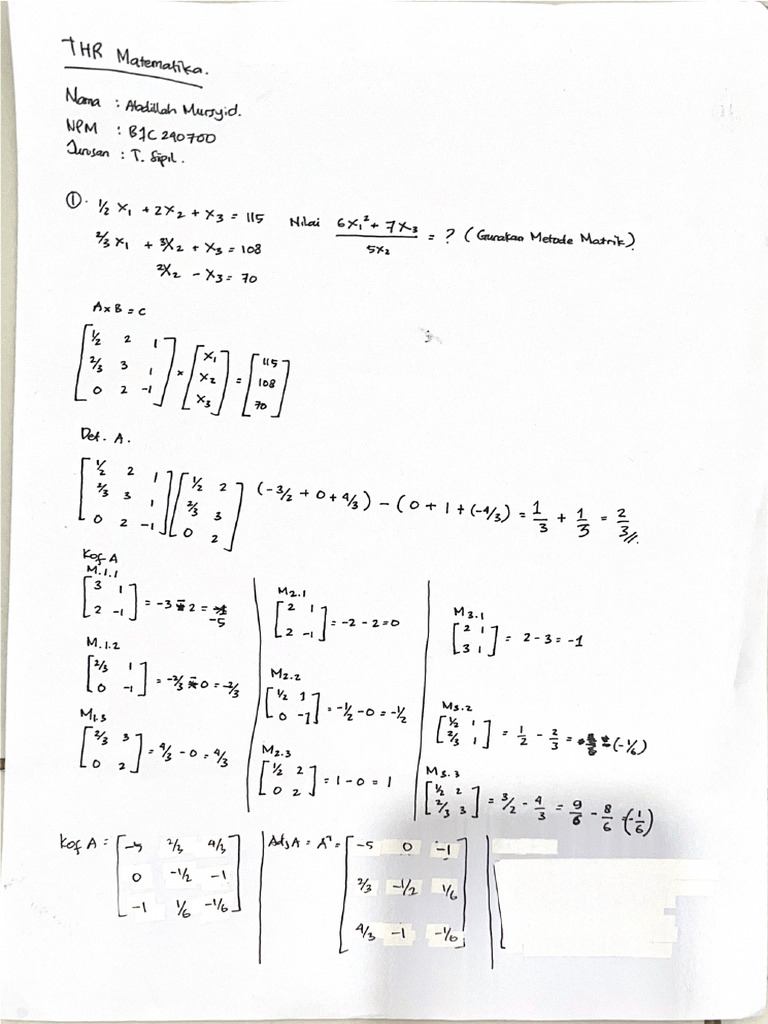 THR Matematika.
Nama : Abdillah Mursyid.
NPM : B1C240700
Jurusan : T. Sipil.
① . ½ X₁ + 2X₂ + X₃ = 115 Nilai (6X₁² + 7X₃)/(5X₂) = ? (Gunakan Metode Matrik).
⅔ X₁ + 3X₂ + X₃ = 108
2X₂ - X₃ = 70
A × B = C
[½ 2 1] [X₁] [115]
[⅔ 3 1] × [X₂] = [108]
[0 2 -1] [X₃] [70]
Det. A.
[½ 2 1] [½ 2] (-3/2 + 0 + 4/3) - (0 + 1 + (-4/3)) = 1/3 + 1/3 = 2/3 //.
[⅔ 3 1] [⅔ 3]
[0 2 -1] [0 2]
Kof A
M.1.1
[3 1]
[2 -1] = -3 - 2 = -5
M.1.2
[⅔ 1]
[0 -1] = -⅔ - 0 = -⅔
M1.3
[⅔ 3]
[0 2] = 4/3 - 0 = 4/3
M2.1
[2 1]
[2 -1] = -2 - 2 = 0
M2.2
[½ 1]
[0 -1] = -½ - 0 = -½
M2.3
[½ 2]
[0 2] = 1 - 0 = 1
M3.1
[2 1]
[3 1] = 2 - 3 = -1
M3.2
[½ 1]
[⅔ 1] = 1/2 - 2/3 = (-1/6)
M3.3
[½ 2]
[⅔ 3] = 3/2 - 4/3 = 9/6 - 8/6 = (-1/6)
Kof A = [-5 2/3 4/3]
[0 -1/2 -1]
[-1 1/6 -1/6]
Adj A = Aᵀ = [-5 0 -1]
[2/3 -1/2 1/6]
[4/3 -1 -1/6]